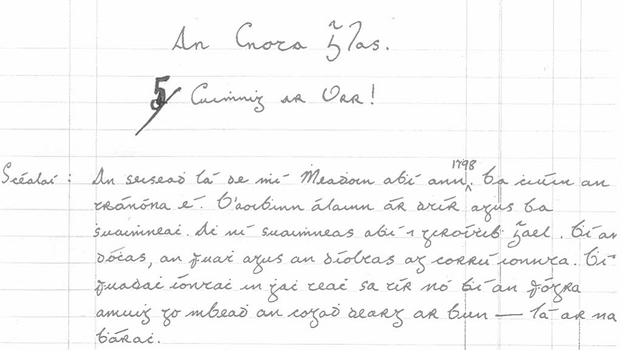 An Cnota Glas.
5 Cuimnig ar Orr!
Scéalaí: An seisead lá de mí Meadoin abí ann, 1798 ba ciúin an
tránóna é. B'aoibinn álainn ár dtír agus ba
suaimneac. Ac ní suaimneas abí i gcroítib Gael. Bí an
dócas, an fuat agus an díoltas ag corruí ionnta. Bí
fuadar iontac in gac teac sa tír nó bí an fógra
amuig go mbead an cogad dearg ar bun — lá ar na
bárac.